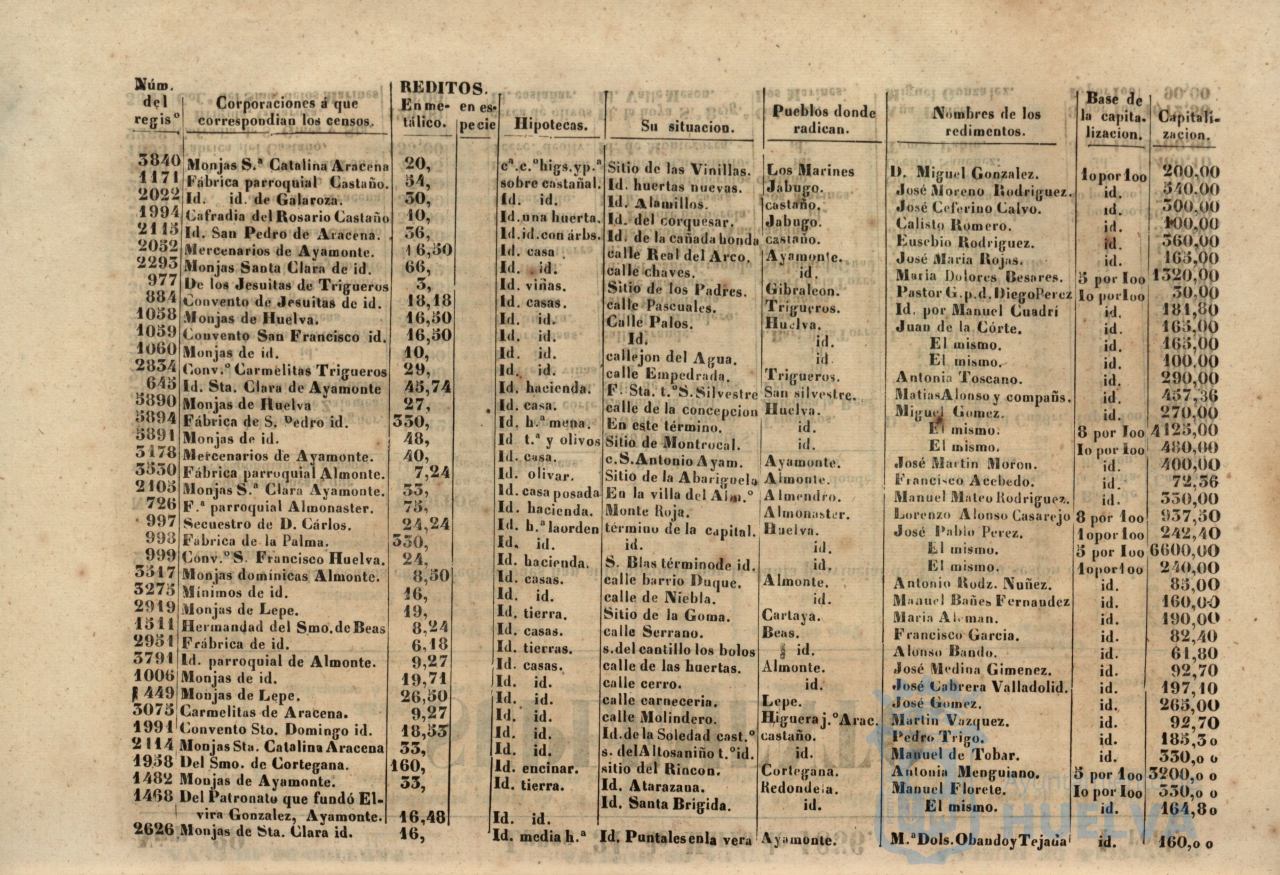 Núm. del regis.º | Corporaciones á que correspondian los censos. | REDITOS. En metálico. | en especie | Hipotecas. | Su situacion. | Pueblos donde radican. | Nombres de los redimentos. | Base de la capitalizacion. | Capitalizacion.
3840 Monjas S.ª Catalina Aracena 20, cª.c.ºhigs.yp.ª Sitio de las Vinillas. Los Marines D. Miguel Gonzalez. 1opor1oo 200,00
1171 Fábrica parroquial Castaño. 54, sobre castañal. Id. huertas nuevas. Jabugo. José Moreno Rodriguez. id. 540,00
2022 Id. id. de Galaroza. 30, Id. id. Id. Alamillos. castaño. José Ceferino Calvo. id. 300,00
1994 Cafradia del Rosario Castaño 10, Id.una huerta. Id. del corquesar. Jabugo. Calisto Romero. id. 100,00
2115 Id. San Pedro de Aracena. 36, Id.id.con árbs. Id. de la cañada honda castaño. Eusebio Rodriguez. id. 360,00
2052 Mercenarios de Ayamonte. 16,50 Id. casa calle Real del Arco. Ayamonte. José Maria Rojas. id. 165,00
2293 Monjas Santa Clara de id. 66, Id. id. calle chaves. id. Maria Dolores Besares. 5 por 1oo 1320,00
977 De los Jesuitas de Trigueros 3, Id. viñas. Sitio de los Padres. Gibraleon. Pastor G.p.d. DiegoPerez 1o por1oo 30,00
884 Convento de Jesuitas de id. 18,18 Id. casas. calle Pascuales. Trigueros. Id. por Manuel Cuadri id. 181,80
1058 Monjas de Huelva. 16,50 Id. id. Calle Palos. Huelva. Juan de la Córte. id. 165,00
1059 Convento San Francisco id. 16,50 Id. id. Id. id. El mismo. id. 165,00
1060 Monjas de id. 10, Id. id. callejon del Agua. id El mismo. id. 100,00
2834 Conv.º Carmelitas Trigueros 29, Id. id. calle Empedrada. Trigueros. Antonia Toscano. id. 290,00
645 Id. Sta. Clara de Ayamonte 45,74 Id. hacienda. F. Sta. t.ºS.Silvestre San silvestre. MatiasAlonso y compañs. id. 457,36
3890 Monjas de Huelva 27, Id. casa. calle de la concepcion Huelva. Miguel Gomez. id. 270,00
3894 Fábrica de S. Pedro id. 330, Id. h.ª mena. En este término. id. El mismo. 8 por 1oo 4125,00
3891 Monjas de id. 48, Id t.ª y olivos Sitio de Montrocal. id. El mismo. 1o por1oo 480,00
3178 Mercenarios de Ayamonte. 40, Id. casa. c.S.Antonio Ayam. Ayamonte. José Martin Moron. id. 400,00
3530 Fábrica parroquial Almonte. 7,24 Id. olivar. Sitio de la Abariguela Almonte. Francisco Acebedo. id. 72,36
2105 Monjas S.ª Clara Ayamonte. 33, Id. casa posada En la villa del Alm.º Almendro. Manuel Mateo Rodriguez. id. 330,00
726 F.ª parroquial Almonaster. 75, Id. hacienda. Monte Roja. Almonaster. Lorenzo Alonso Casarejo 8 por 1oo 937,50
997 Secuestro de D. Cárlos. 24,24 Id. h.ª laorden término de la capital. Huelva. José Pablo Perez. 1opor1oo 242,40
998 Fábrica de la Palma. 330, Id. id. id. id. El mismo. 5 por 1oo 6600,00
999 Conv.º S. Francisco Huelva. 24, Id. hacienda. S. Blas términode id. id. El mismo. 1opor1oo 240,00
3517 Monjas dominicas Almonte. 8,50 Id. casas. calle barrio Duque. Almonte. Antonio Rodz. Nuñez. id. 85,00
3275 Minimos de id. 16, Id. id. calle de Niebla. id. Manuel Bañes Fernandez id. 160,00
2919 Monjas de Lepe. 19, Id. tierra. Sitio de la Goma. Cartaya. Maria Aleman. id. 190,00
1511 Hermandad del Smo. de Beas 8,24 Id. casas. calle Serrano. Beas. Francisco Garcia. id. 82,40
2951 Frábrica de id. 6,18 Id. tierras. s.del cantillo los bolos id. Alonso Bando. id. 61,80
3791 Id. parroquial de Almonte. 9,27 Id. casas. calle de las huertas. Almonte. José Medina Gimenez. id. 92,70
1006 Monjas de id. 19,71 Id. id. calle cerro. id. José Cabrera Valladolid. id. 197,10
449 Monjas de Lepe. 26,50 Id. id. calle carneceria. Lepe. José Gomez. id. 265,00
3075 Carmelitas de Aracena. 9,27 Id. id. calle Molindero. Higuera j.º Arac. Martin Vazquez. id. 92,70
1991 Convento Sto. Domingo id. 18,53 Id. id. Id.de la Soledad cast.º castaño. Pedro Trigo. id. 185,3o
2114 Monjas Sta. Catalina Aracena 33, Id. id. s. delAltosaniño t.ºid. id. Manuel de Tobar. id. 330,oo
1958 Del Smo. de Cortegana. 160, Id. encinar. sitio del Rincon. Cortegana. Antonia Menguiano. 5 por 1oo 3200,oo
1482 Monjas de Ayamonte. 33, Id. tierra. Id. Atarazana. Redondela. Manuel Florete. 1o por 1oo 330,oo
1468 Del Patronato que fundó Elvira Gonzalez, Ayamonte. 16,48 Id. id. Id. Santa Brigida. id. El mismo. id. 164,8o
2626 Monjas de Sta. Clara id. 16, Id. media h.ª Id. Puntales enla vera Ayamonte. M.ª Dols. Obando y Tejada id. 160,oo
HUELVA